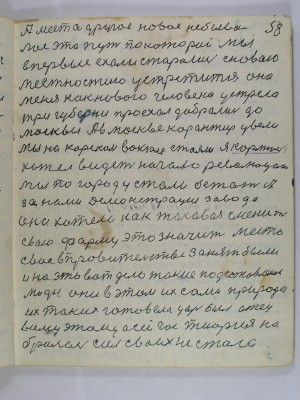 58
А места другое новое небыва-
лое это пут по которай мы
впервые ехали старались с новаю
местностию устретится она
меня как нового человека устрела
три губерни проехал добрались до
москвы Ав москве карантир увели
мы на корской вокзал стали Я
хотел видет начало революции
мы по городу стали бегать а
за нами демонстрации завода
она хотела как таковая сменит
сваю фарму это значит место
свае в правительстве занят были
и на это вот дело такие подготовлиные
люди они в этом их сама природа
их таких готовела цар был отец
всему этому а сей час теория на
бралась сил своих не стала